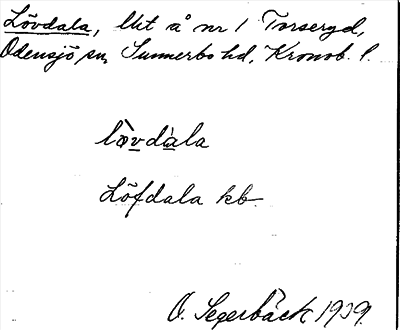 Lövdala, lht å nr 1 Torseryd,
Odensjö sn, Sunnerbo hd, Kronob. l.
lævdala
Löfdala kb
O. Segerbäck 1939.